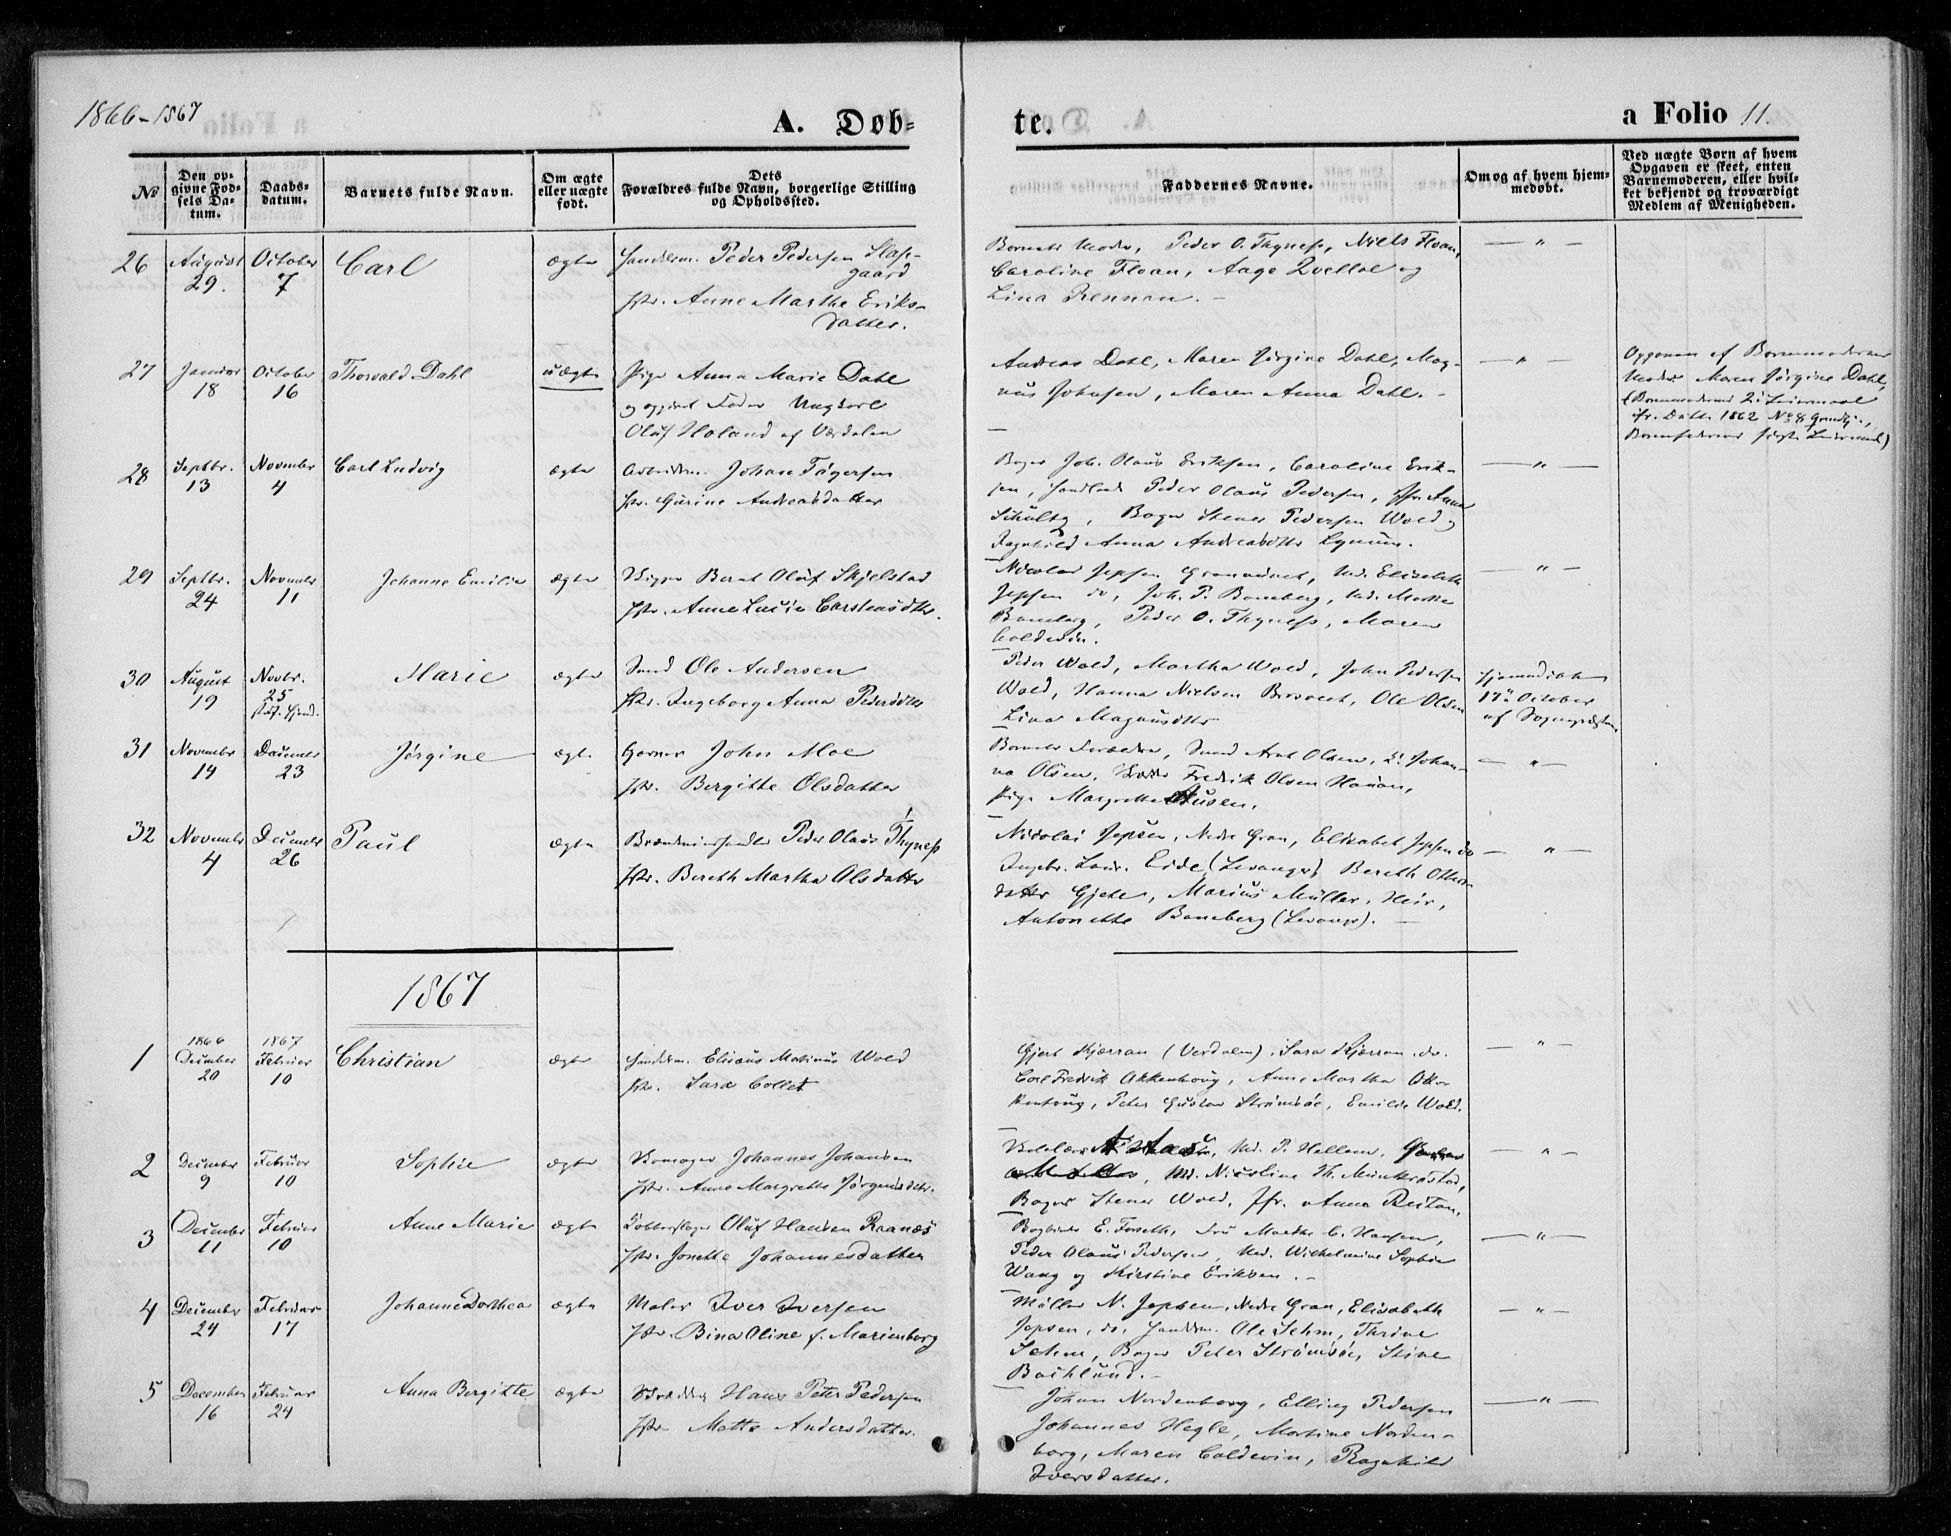 1866-1867
A. Døb-
te.
a Folio 11.
No
Den op-
givne Fød-
sels Da-
tum.
Daabs-
datum.
Barnets fulde Navn.
Om ægte
eller uægte
født.
Dets
Forældres fulde Navn, borgerlige Stilling
og Opholdssted.
Faddernes Navne.
Om og af hvem hjem-
medøbt.
Ved uægte Børn af hvem
Opgaven er skeet, enten
Barnemoderen, eller hvil-
ket bekjendt og troværdigt
Medlem af Menigheden.
26
August
29.
October
7
Carl
ægte
Handelsm. Peder Pedersen
gaard
Hstr. Anne Martha Eriks-
datter.
Barnets Moder, Peder O. Thyness, Niels Floan,
Caroline Floan, Aage Qvelloe og
Lina Rennan.
— " —
27
Januar
18
October
16
Thorvald Dahl
uægte
Pige Anna Marie Dahl
og Fader Ungkarl
Oluf Holand af Værdalen
Andreas Dahl, Maren Jørgine Dahl, Mag-
nus Johnsen, Maren Anna Dahl.
— " —
Opgaven af Barnemoderens
Moder Maren Jørgine Dahl,
(Barnemoderens 2. Leiermaal
cfr. Døbte 1862 No 8
Barnefaderens første Leiermaal)
28
Septbr.
13
November
4
Carl Ludvig
ægte
Arbeidsm. Johan
Hstr. Gurine Andreasdatter
Bager Joh. Olaus Eriksen, Caroline Erik-
sen, Peder Olaus Pedersen, Jfr. Anna
Schultz, Bager Stener Pedersen Wold og
Ragnhild Anna Andreasdtr Lynum.
— " —
29
Septbr.
24
November
11
Johanne Emilie
ægte
Bernt Oluf Skjelstad
Hstr. Anne Lucie Carstensdtr.
Nicolai Jepsen, Md. Elisabeth
Jepsen do, Joh. P. Baneberg, Md. Marthe
Baneberg, Peder O. Thyness, Maren
Coldevin.
— " —
30
August
19
Novbr.
25
Marie
ægte
Smed Ole Andersen
Hstr. Ingeborg Anna Pedersdtr
Peder Wold, Martha Wold, John Pedersen
Wold, Hanna Nielsen, Ole Olsen
Lina Magnusdtr
Hjemmedøbt
17de October
af Sognepræsten
31
November
14
December
23
Jørgine
ægte
Garver John Moe
Hstr. Bergitte Olsdatter
Barnets Forældre, Smed Arnt Olsen, Johan-
na Olsen, Fredrik Olsen
Pige Margrethe
— " —
32
November
4
December
26
Paul
ægte
Brændevinshandler Peder Olaus Thyness
Hstr. Bereth Martha Olsdatter
Nicolai Jepsen, Nedre Gran, Elisabet Jepsen do
Ingebr. Eide (Levanger) Bereth
datter Gjete, Marius Müller,
Antonette Baneberg (Levanger).
— " —
1867
1
1866
December
20
1867
Februar
10
Christian
ægte
Handelsm. Eliseus Matinus Wold
Hstr. Sara Collet
Gjert Kjærran (Verdalen), Sara Kjærran do.
Carl Fredrik Akkenhoug, Anne Martha Ak-
kenhoug, Peter Gustav Strømsøe, Emilie Wold.
— " —
2
December
9
Februar
10
Sophie
ægte
Johannes Johansen
Hstr. Anne Margrethe Jørgensdtr.
Md. P. Hellem,
Md. Nicoline
Bager Stener Wold, Jfr. Anna Reitan.
— " —
3
December
11
Februar
10
Anne Marie
ægte
Kobberslager Oluf Hansen Raanæs
Hstr. Jonette Johannesdatter
Bogbinder E. Forseth, Fru Marthe C. Hansen,
Peder Olaus Pedersen, Md. Wilhelmine Sophie
Wang og Kirstine Eriksen.
— " —
4
December
24
Februar
17
Johanne Dorthea
ægte
Maler Iver Iversen
Hstr. Bina Oline f. Marienborg
Müller N. Jepsen, Nedre Gran, Elisabeth
Jepsen, do, Handelsm. Ole Sehm, Thrine
Sehm, Bager Peter Strømsøe, Stine
Bachlund.
— " —
5
December
16
Februar
24
Anna Bergitte
ægte
Hans Peter Pedersen
Hstr. Mette Andersdatter.
Johan Nordenborg, Elling Pedersen
Johannes Hegle, Martine Norden-
borg, Maren Coldevin, Ragnhild
Iversdatter.
— " —